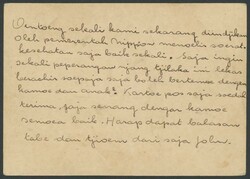 Oentoeng sekali kami sekarang diidjinkan
oleh pemerentah Nippon menoelis soerat.
kesehatan saja baik sekali. Saja ingin
sekali peperangan njang tjilaka ini lekas
berachir soepaja saja boleh bertemoe dengan
kamoe dan anak². Kartoe pos saja soedah
terima, saja senang dengar kamoe
semoea baik. Harap dapat balasan
tabe dan tjioem dari saja John.